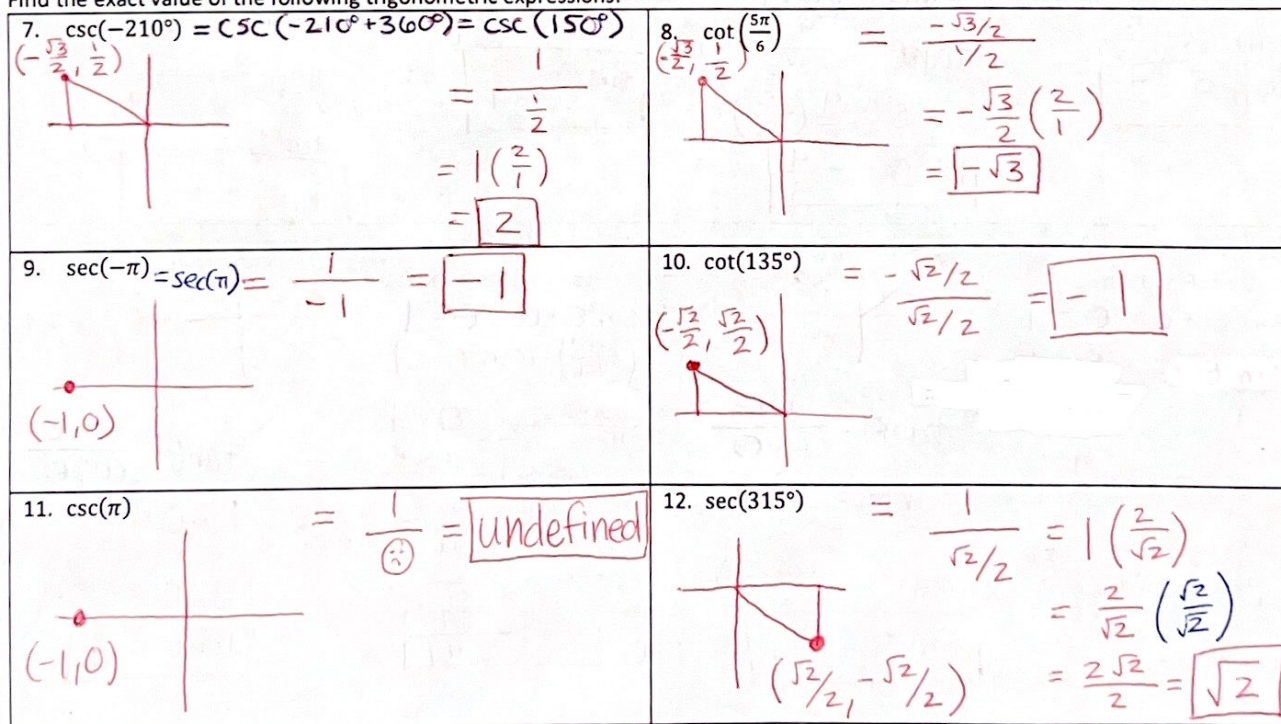 Find the exact value of the following trigonometric expressions.
7. csc(−210°) = CSC (−210° + 360°) = csc (150°)
(−√3/2, 1/2)
= 1/(1/2)
= 1(2/1)
= 2
8. cot(5π/6) = (−√3/2)/(1/2)
(−√3/2, 1/2)
= −√3/2 (2/1)
= −√3
9. sec(−π) = sec(π) = 1/−1 = −1
(−1,0)
10. cot(135°) = −(√2/2)/(√2/2) = −1
(−√2/2, √2/2)
=
11. csc(π) = 1/☹ = undefined
(−1,0)
12. sec(315°) = 1/(√2/2) = 1(2/√2)
= 2/√2 (√2/√2)
(√2/2, −√2/2)
= 2√2/2 = √2